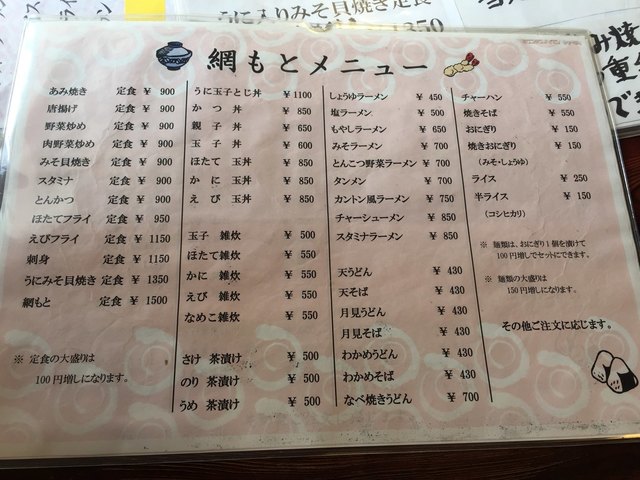 うに入りみそ貝焼き定食
1350
網もとメニュー
あみ焼き 定食 ¥ 900
唐揚げ 定食 ¥ 900
野菜炒め 定食 ¥ 900
肉野菜炒め 定食 ¥ 900
みそ貝焼き 定食 ¥ 900
スタミナ 定食 ¥ 900
とんかつ 定食 ¥ 900
ほたてフライ 定食 ¥ 950
えびフライ 定食 ¥ 1150
刺身 定食 ¥ 1150
うにみそ貝焼き 定食 ¥ 1350
網もと 定食 ¥ 1500
※ 定食の大盛りは
100円増しになります。
うに玉子とじ丼 ¥ 1100
かつ 丼 ¥ 850
親子 丼 ¥ 650
玉子 丼 ¥ 600
ほたて 玉丼 ¥ 850
かに 玉丼 ¥ 850
えび 玉丼 ¥ 850
玉子 雑炊 ¥ 500
ほたて雑炊 ¥ 550
かに 雑炊 ¥ 550
えび 雑炊 ¥ 550
なめこ雑炊 ¥ 550
さけ 茶漬け ¥ 500
のり 茶漬け ¥ 500
うめ 茶漬け ¥ 500
しょうゆラーメン ¥ 450
塩ラーメン ¥ 500
もやしラーメン ¥ 650
みそラーメン ¥ 700
とんこつ野菜ラーメン ¥ 700
タンメン ¥ 700
カントン風ラーメン ¥ 750
チャーシューメン ¥ 850
スタミナラーメン ¥ 850
天うどん ¥ 430
天そば ¥ 430
月見うどん ¥ 430
月見そば ¥ 430
わかめうどん ¥ 430
わかめそば ¥ 430
なべ焼きうどん ¥ 700
チャーハン ¥ 550
焼きそば ¥ 550
おにぎり ¥ 150
焼きおにぎり ¥ 150
(みそ・しょうゆ)
ライス ¥ 250
半ライス ¥ 150
(コシヒカリ)
※ 麺類は、おにぎり1個を漬けて
100円増しでセットにできます。
※ 麺類の大盛りは
150円増しになります。
その他ご注文に応じます。